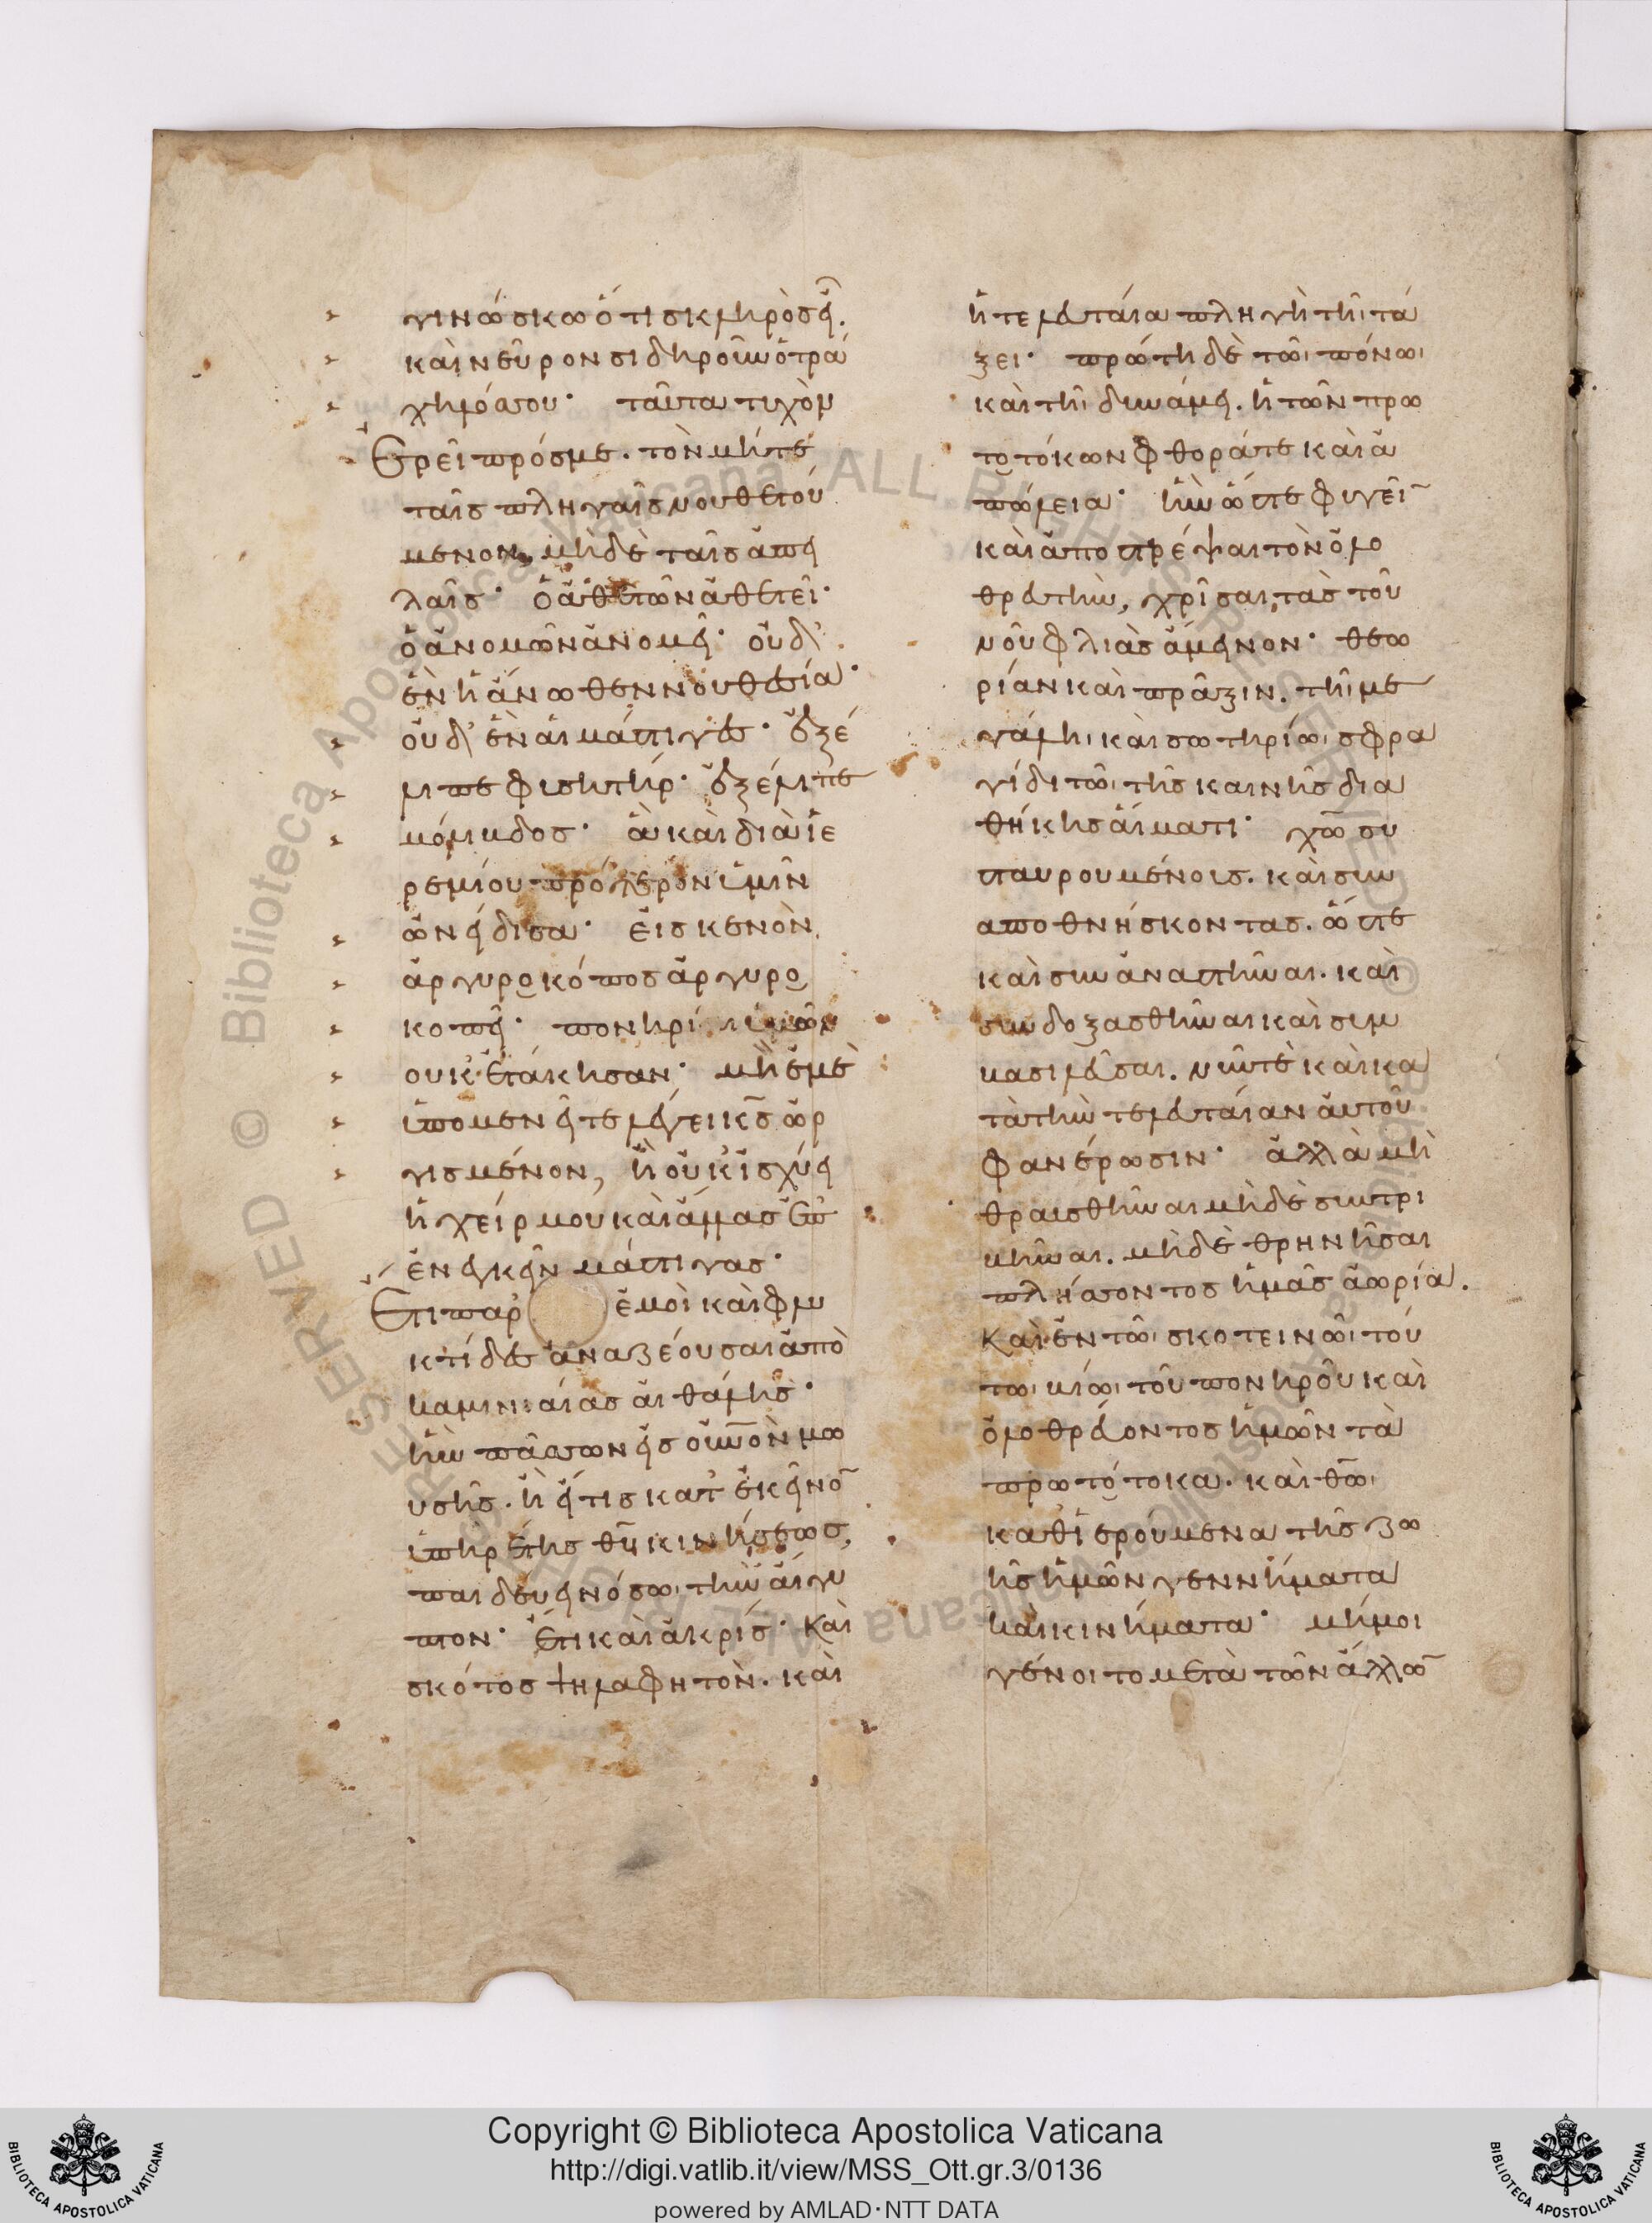 γινώσκω ὅτι σκληρὸς εἶ.
καὶ νεῦρον σιδηροῦν ὁ τρά
χηλός σου· ταῦτα τυχὸν
ἐρεῖ πρός με. τὸν μήτε
ταῖς πληγαῖς νουθετού
μενον, μηδὲ ταῖς ἀπει
λαῖς· ὁ ἀθετῶν ἀθετεῖ·
ὁ ἀνομῶν ἀνομεῖ· οὐδ
ἐν ἡ ἄνωθεν νουθεσία·
οὐδ ἐν αἱ μάστιγες· ἐξέ
λιπε φυσητήρ· ἐξέλιπε
μόλιβδος· ἃ καὶ διὰ ἱε
ρεμίου πρότερον ὑμῖν
ὠνείδισα· εἰς κενὸν
ἀργυροκόπος ἀργυρο
κοπεῖ· πονηρίαι ὑμῶν
οὐκ ἐτάκησαν· μὴ ἐμὲ
ὑπομενεῖτε λέγει κς ὠρ
γισμένον, ἢ οὐκ ἰσχύει
ἡ χείρ μου καὶ ἄλλας ἐπ
ενεγκεῖν μάστιγας·
ἔτι παρ ἐμοὶ καὶ φλυ
κτίδες ἀναζέουσαι ἀπὸ
καμινιαίας αἰθάλης·
ἣν πάσσων εἰς οὐνὸν μω
υσῆς. ἢ εἴ τις κατ ἐκεῖνο
ὑπηρέτης θυ κινήσεως,
παιδεύει νόσῳ τὴν αἴγυ
πτον· ἔτι καὶ ἀκρίς· καὶ
σκότος ψηλαφητὸν. καὶ
ἡ τελευταία πληγὴ τῇ τά
ξει· πρώτη δὲ τῷ πόνῳ
καὶ τῇ δυνάμει. ἡ τῶν πρω
τοτόκων φθορά τε καὶ ἀ
πώλεια· ἣν ὥστε φυγεῖ
καὶ ἀποστρέψαι τὸν ὀλο
θρευτὴν, χρῖσαι τὰς τοῦ
νοῦ φλιὰς ἄμεινον· θεω
ρίαν καὶ πρᾶξιν. τῇ με
γάλῃ καὶ σωτηρίῳ σφρα
γίδι τῷ τῆς καινῆς δια
θήκης αἵματι· χῷ συ
σταυρουμένοις. καὶ συν
αποθνήσκοντας. ὥστε
καὶ συναναστῆναι. καὶ
συνδοξασθῆναι καὶ συμ
βασιλεῦσαι. νῦν τε καὶ κα
τὰ τὴν τελευταίαν αὐτοῦ
φανέρωσιν· ἀλλὰ μὴ
θραυσθῆναι μηδὲ συντρι
βῆναι. μηδὲ θρηνῆσαι
πλήσσοντος ἡμᾶς ἀωρίᾳ.
καὶ ἐν τῷ σκοτεινῷ τού
τῳ βίῳ τοῦ πονηροῦ καὶ
ὀλοθρεύοντος ἡμῶν τὰ
πρωτότοκα. καὶ θῷ
καθιερούμενα τῆς ζω
ῆς ἡμῶν γεννήματα
καὶ κινήματα· μή μοι
γένοιτο μετὰ τῶν ἄλλω
Copyright © Biblioteca Apostolica Vaticana
http://digi.vatlib.it/view/MSS_Ott.gr.3/0136
powered by AMLAD·NTT DATA
BIBLIOTECA APOSTOLICA VATICANA
BIBLIOTECA APOSTOLICA VATICANA